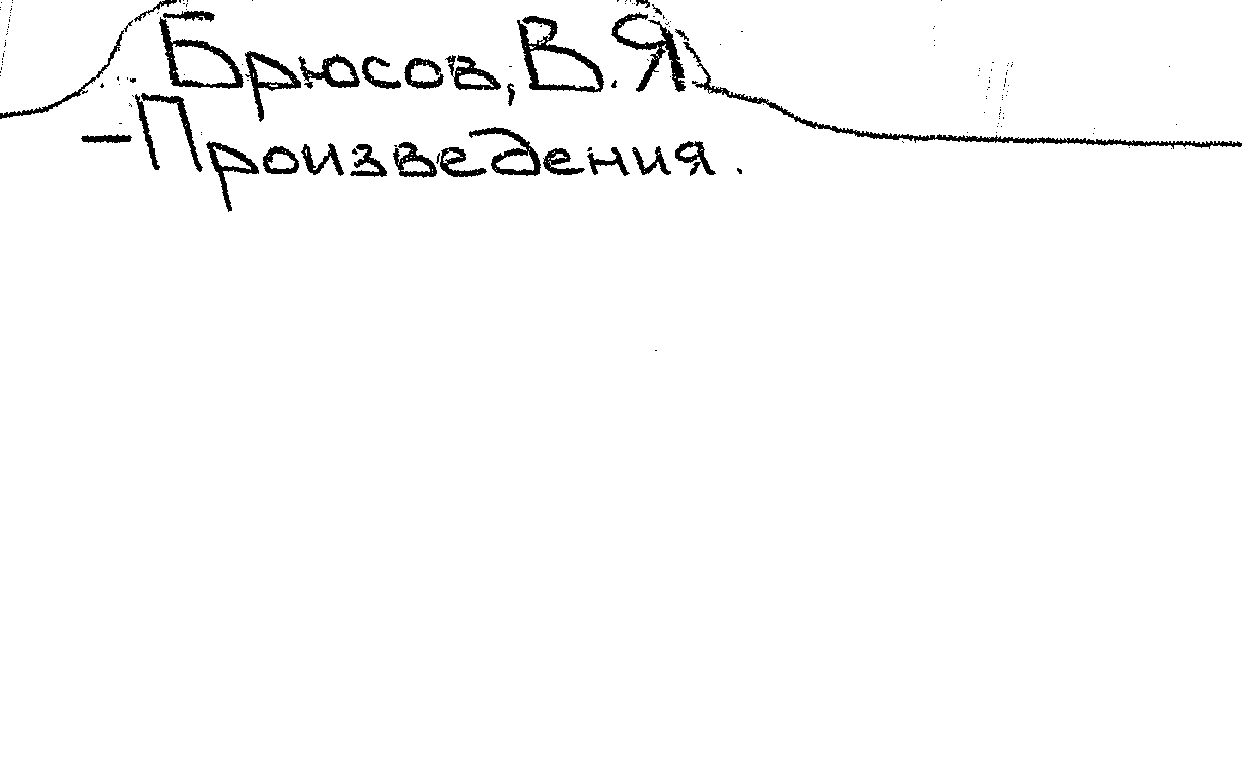 Брюсов, В.Я.
-Произведения.